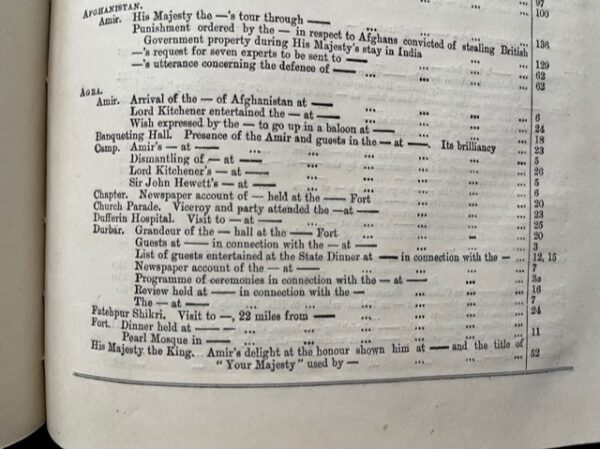 97
AFGHANISTAN.
Amir. His Majesty the —'s tour through — ... ... 100
Punishment ordered by the — in respect to Afghans convicted of stealing British 136
Government property during His Majesty's stay in India ... ... 129
—'s request for seven experts to be sent to — ... ... ... 62
—'s utterance concerning the defence of — ... ... ... 62
AGRA.
Amir. Arrival of the — of Afghanistan at — ... ... ... 6
Lord Kitchener entertained the — at — ... ... ... 24
Wish expressed by the — to go up in a baloon at — ... ... ... 18
Banqueting Hall. Presence of the Amir and guests in the — at —. Its brilliancy ... 23
Camp. Amir's — at — ... ... ... ... 5
Dismantling of — at — ... ... ... ... 26
Lord Kitchener's — at — ... ... ... ... 5
Sir John Hewett's — at — ... ... ... ... 6
Chapter. Newspaper account of — held at the — Fort ... ... ... 20
Church Parade. Viceroy and party attended the — at — ... ... ... 23
Dufferin Hospital. Visit to — at — ... ... ... ... 25
Durbár. Grandeur of the — hall at the — Fort ... ... ... 20
Guests at — in connection with the — at — ... ... ... 3
List of guests entertained at the State Dinner at — in connection with the — ... 12, 15
Newspaper account of the — at — ... ... ... 7
Programme of ceremonies in connection with the — at — ... ... 3a
Review held at — in connection with the — ... ... ... 16
The — at — ... ... ... ... 7
Fatehpur Shikri. Visit to —, 22 miles from — ... ... ... 24
Fort. Dinner held at — — ... ... ... ... 11
Pearl Mosque in — ... ... ... ...
His Majesty the King. Amir's delight at the honour shown him at — and the title of
"Your Majesty" used by — ... ... ... 52